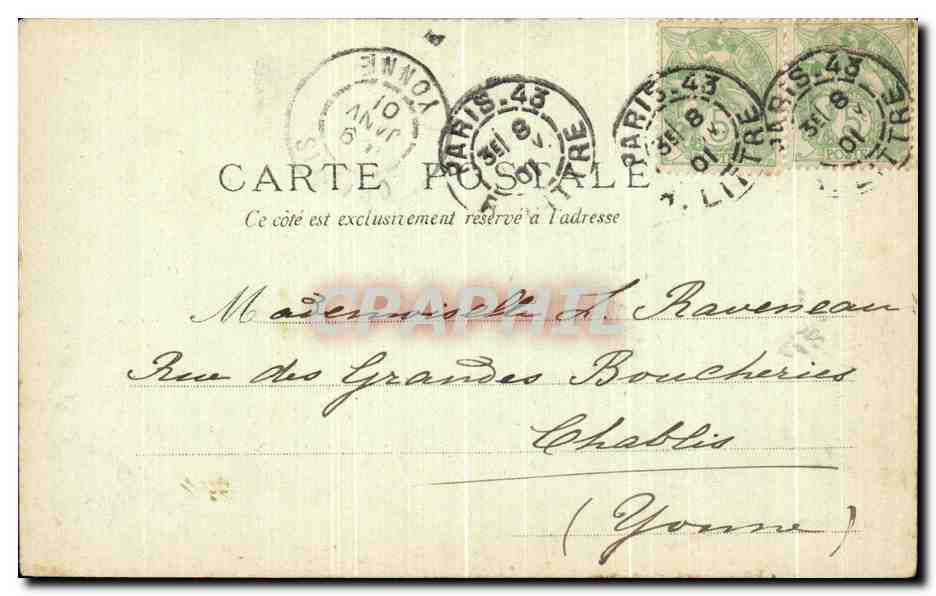 YONNE
JANV
01
PARIS. 43
3E/ 8
01
LITTRE
PARIS. 43
3E/ 8
01
R. LITTRE
PARIS. 43
3E/ 8
01
LITTRE
5
5
POSTES
CARTE POSTALE
Ce côté est exclusivement réservé à l'adresse
CPAPHIL
Mademoiselle L. Raveneau
Rue des Grandes Boucheries
Chablis
(Yonne)